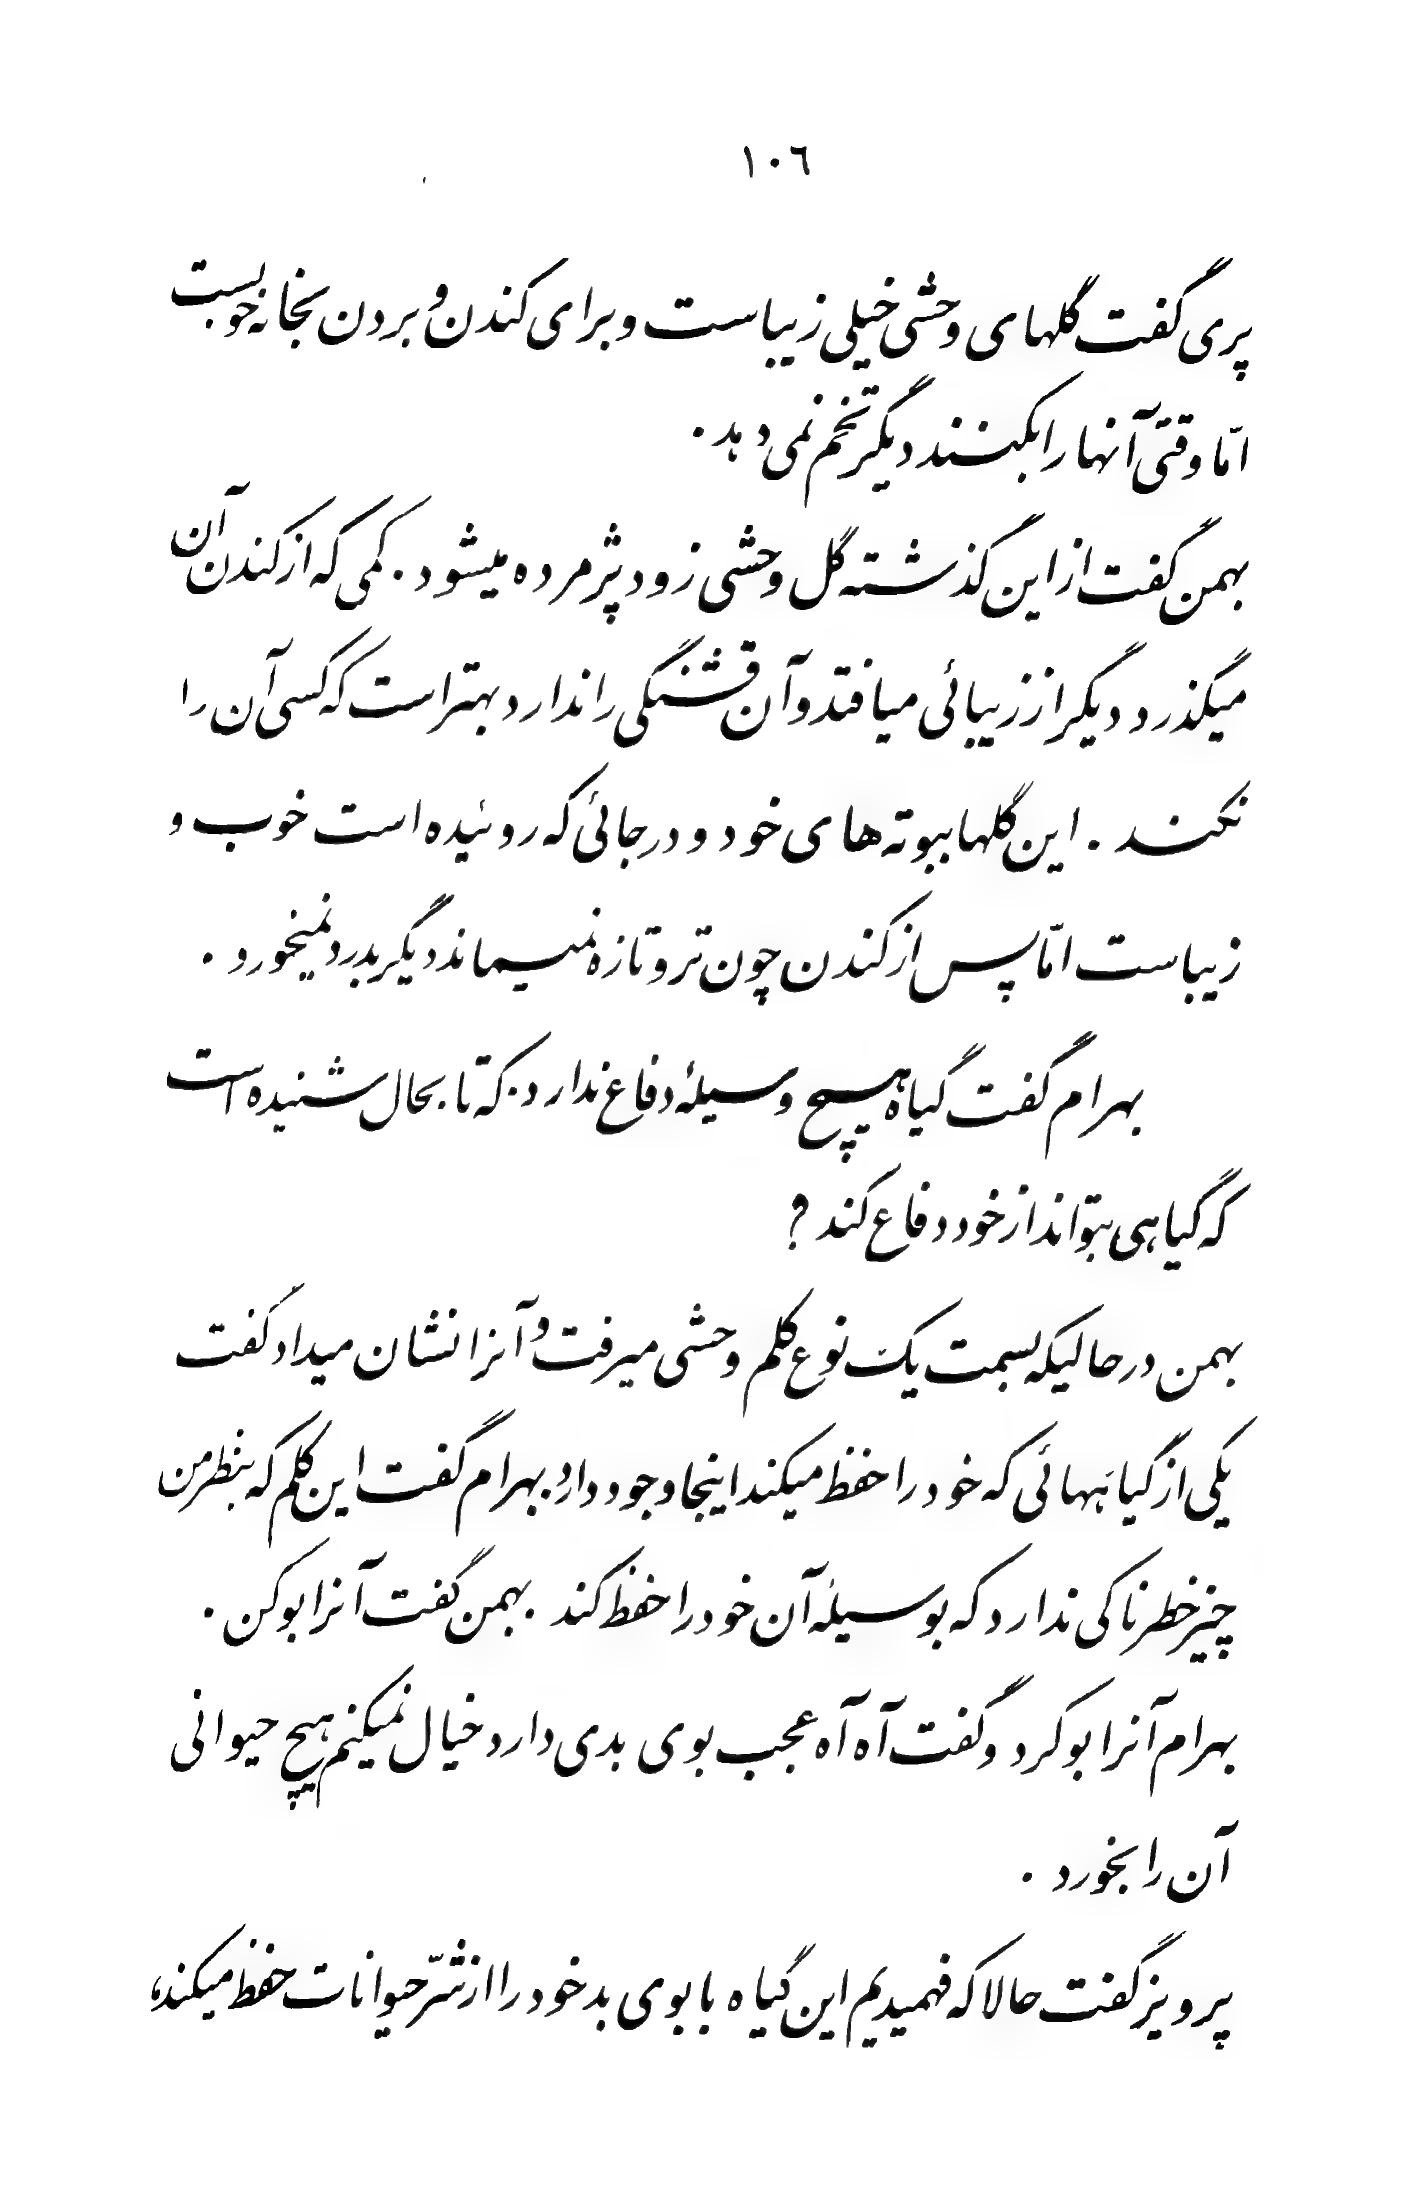 ١٠٦
پری گفت گلهای وحشی خیلی زیباست و برای کندن و بردن بخانه خوبست
امّا وقتی آنها را بکنند دیگر تخم نمی دهد .
بهمن گفت از این گذشته گل وحشی زود پژمرده میشود . کمی که از کندن آن
میگذرد دیگر از زیبائی میافتد و آن قشنگی را ندارد بهتر است که کسی آن را
نکند . این گلها ببوته های خود و در جائی که روئیده است خوب و
زیباست امّا پس از کندن چون تر و تازه نمیماند دیگر بدرد نمیخورد .
بهرام گفت گیاه هیچ وسیلۀ دفاع ندارد . که تا بحال شنیده است
که گیاهی بتواند از خود دفاع کند ؟
بهمن در حالیکه بسمت یک نوع کلم وحشی میرفت و آنرا نشان میداد گفت
یکی از گیاههائی که خود را حفظ میکند اینجا وجود دارد . بهرام گفت این کلم که بنظر من
چیز خطرناکی ندارد که بوسیلۀ آن خود را حفظ کند . بهمن گفت آنرا بو کن .
بهرام آنرا بو کرد و گفت آه آه عجب بوی بدی دارد خیال نمیکنم هیچ حیوانی
آن را بخورد .
پرویز گفت حالا که فهمیدیم این گیاه با بوی بد خود را از شرّ حیوانات حفظ میکند،